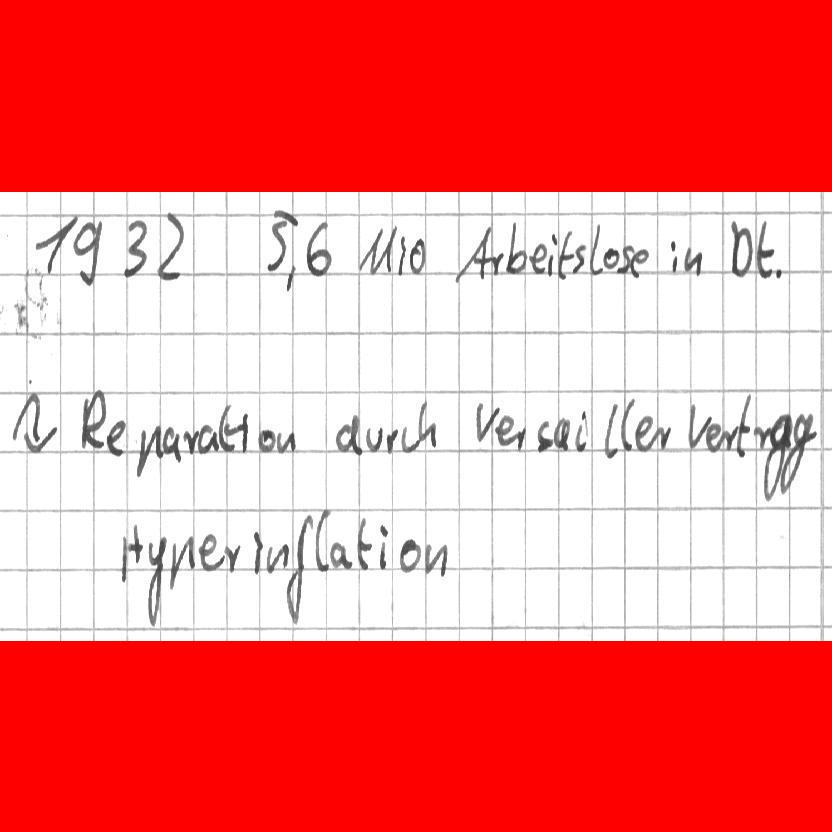 1932 5,6 Mio Arbeitslose in Dt.
↳ Reparation durch Versailler Vertrag
Hyperinflation